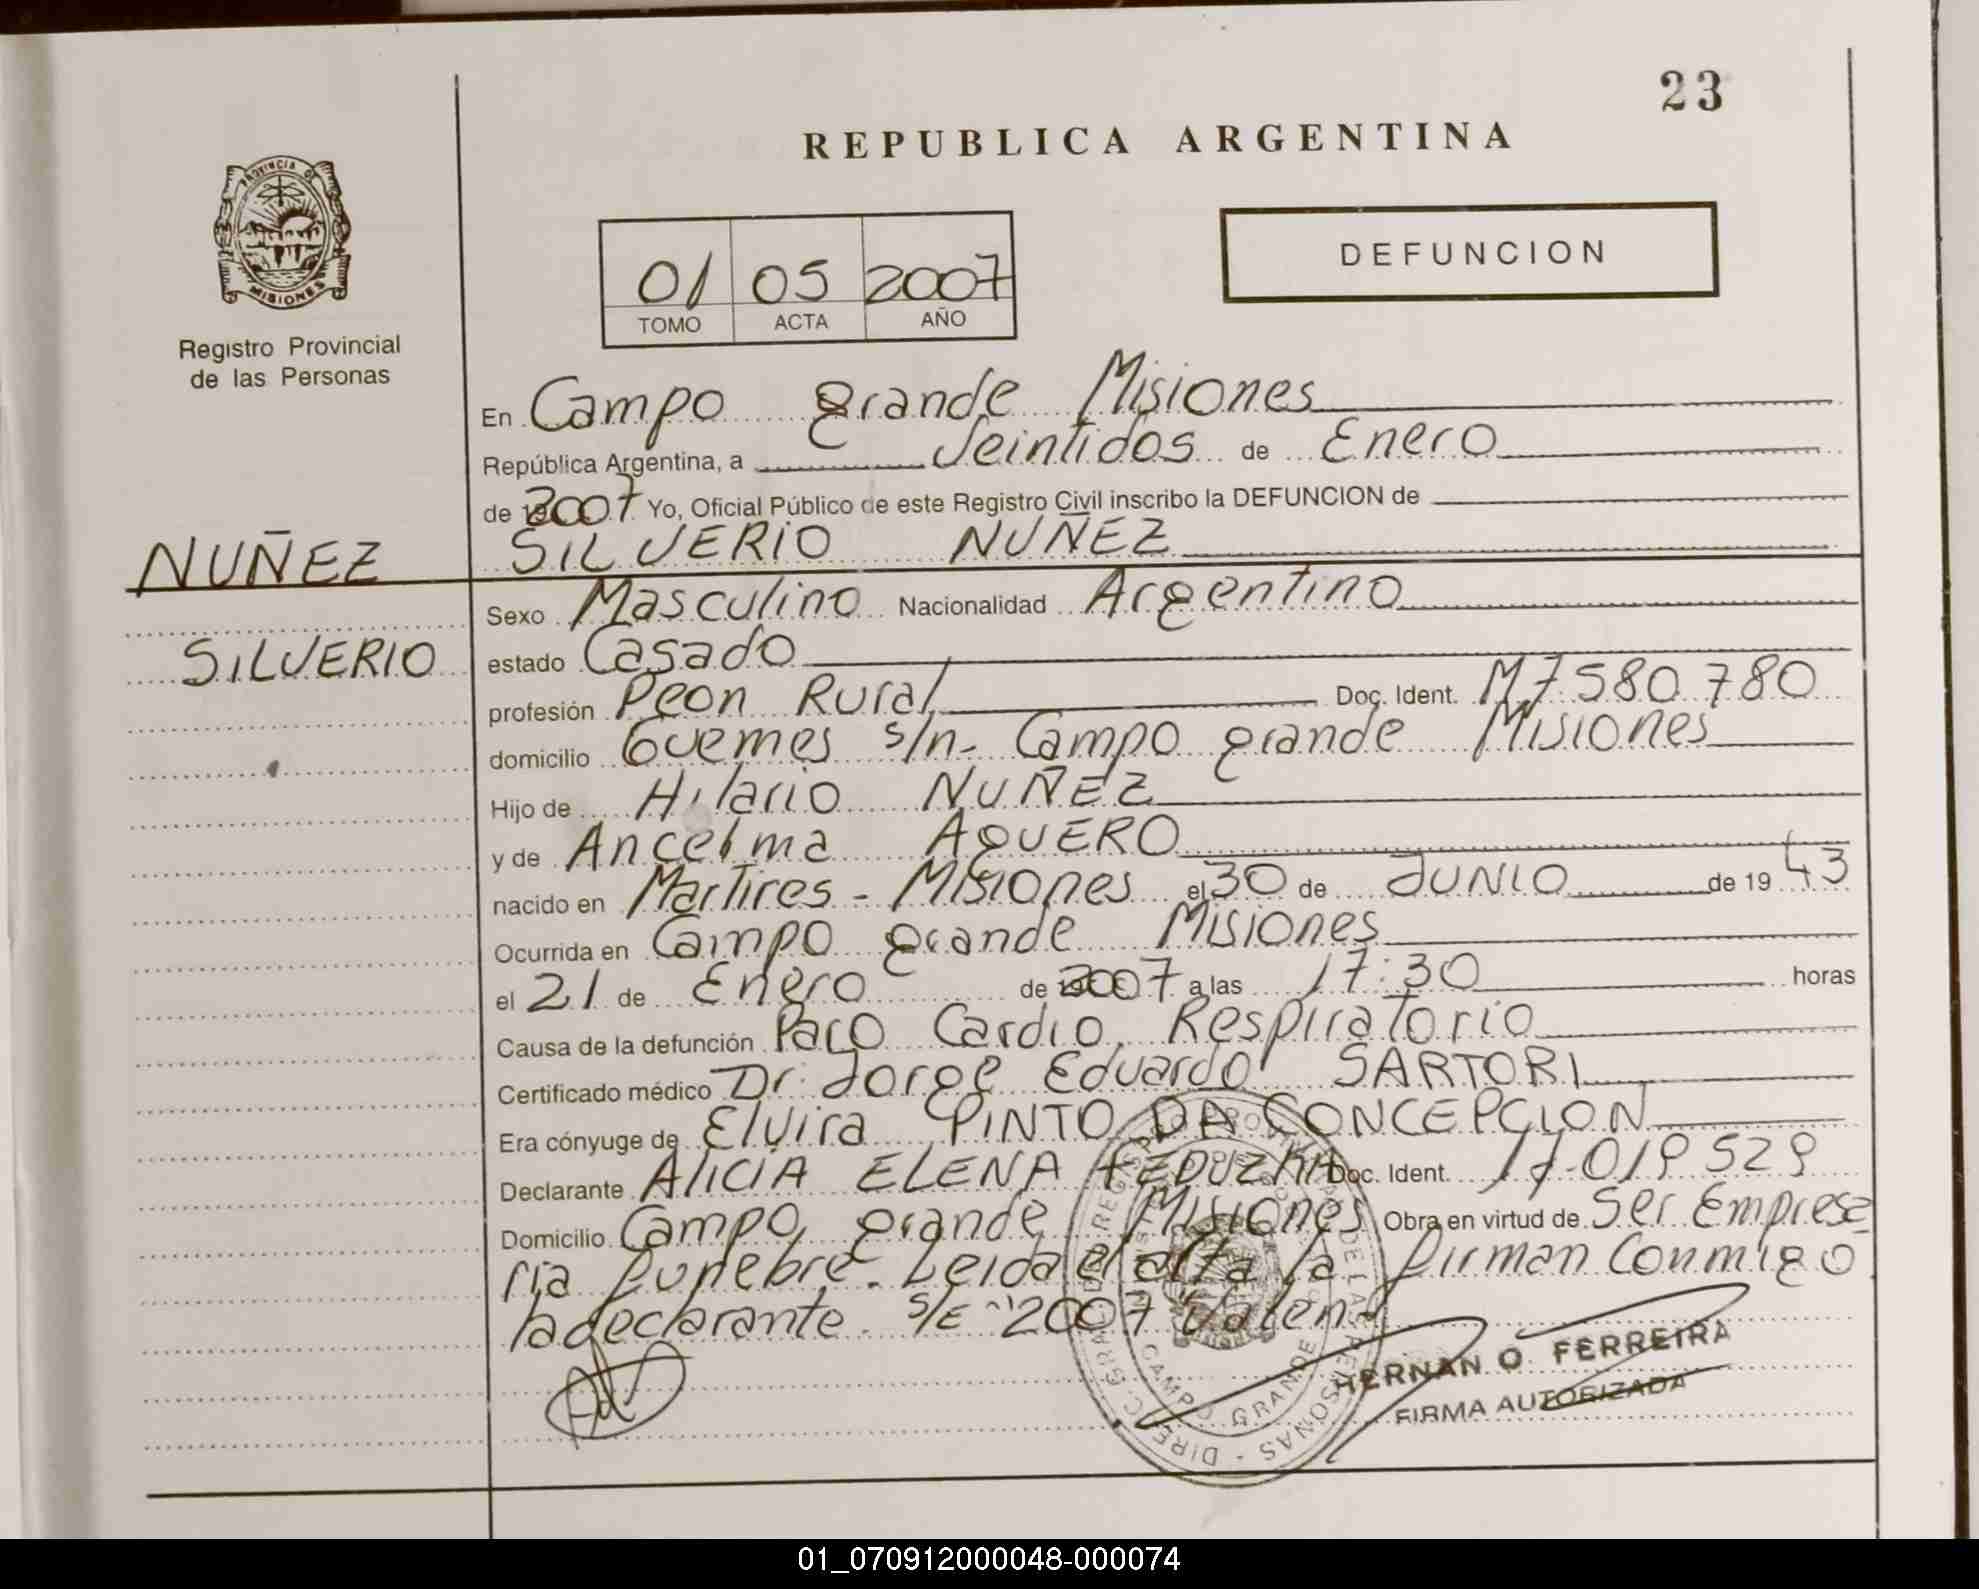 23
REPUBLICA ARGENTINA
PROVINCIA DE
MISIONES
Registro Provincial
de las Personas
01 05 2007
TOMO ACTA AÑO
DEFUNCION
En Campo grande Misiones
República Argentina, a Veintidos de Enero
de 2007 Yo, Oficial Público de este Registro Civil inscribo la DEFUNCION de
NUÑEZ
SILVERIO NUÑEZ
Sexo Masculino Nacionalidad Argentino
SILVERIO
estado Casado
profesión Peon Rural Doc. Ident. M7.580.780
domicilio Guemes s/n- Campo grande Misiones
Hijo de Hilario NUÑEZ
y de Ancelma AGUERO
nacido en Martires - Misiones el 30 de JUNIO de 1943
Ocurrida en Campo grande Misiones
el 21 de Enero de 2007 a las 17:30 horas
Causa de la defunción Paro Cardio Respiratorio
Certificado médico Dr. Jorge Eduardo SARTORI
Era cónyuge de Elvira PINTO DA CONCEPCION
Declarante ALICIA ELENA Doc. Ident. 17.019.529
Domicilio Campo grande Misiones Obra en virtud de Ser Empresa
ria funebre. Leida el acta la firman Conmigo
la declarante. S/E "2007 Valen
HERNAN O. FERREIRA
FIRMA AUTORIZADA
CAMPO GRANDE
01_070912000048-000074